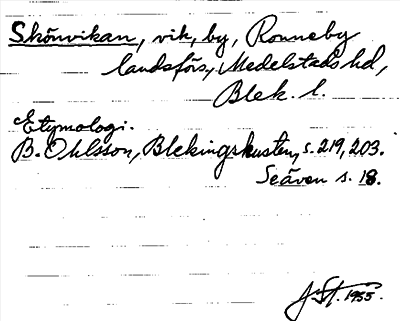 Skönvikan, vik, by, Ronneby
landsförs., Medelstads hd,
Blek. l.
Etymologi.
B. Ohlsson, Blekingskusten, s. 219, 203.
Se även s. 18.
J. St. 1955.